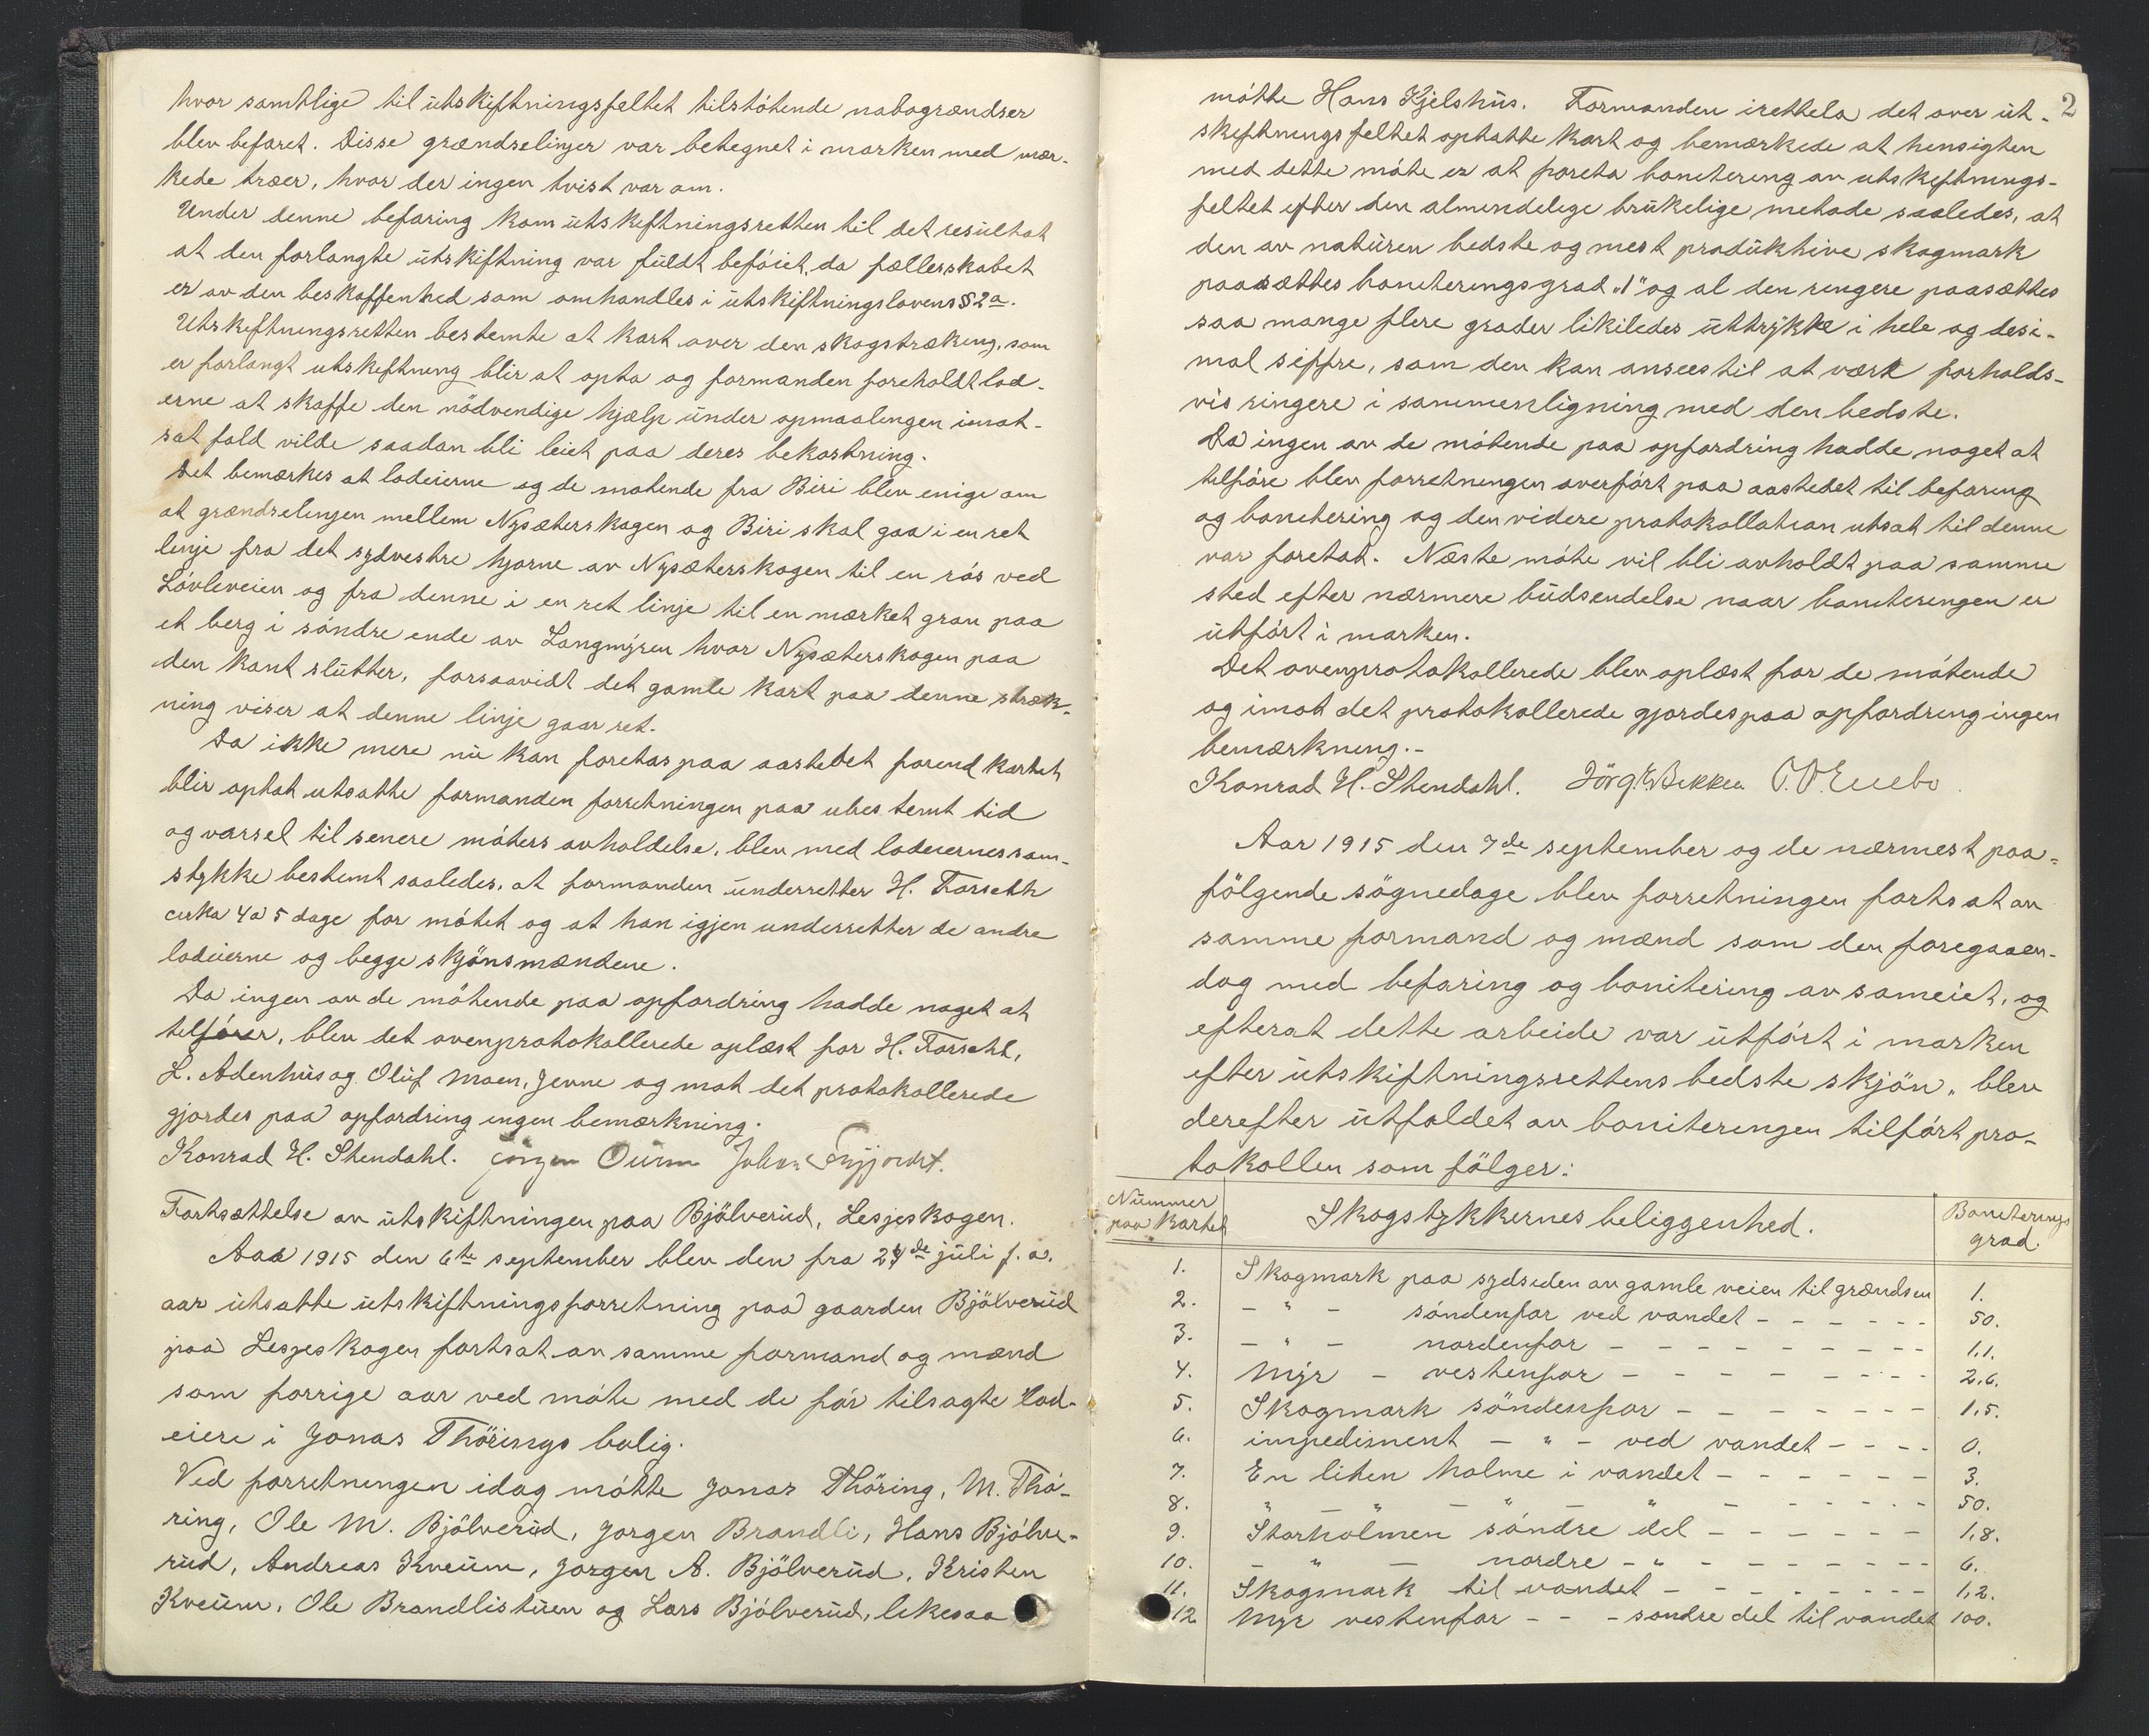 hvor samtlige til utskiftningsfeltet tilstötende nabogrændser
blev befaret. Disse grændselinjer var betegnet i marken med mær-
kede træer, hvor der ingen tvist var om.
Under denne befaring kom utskiftningsretten til det resultat
at den forlangte utskiftning var fuldt beföiet, da fællesskabet
er av den beskaffenhed som omhandles i utskiftningslovens § 2a.
Utskiftningsretten bestemte at kart over den skogstrækning, som
er forlangt utskiftning blir at opta og formanden foreholdt lod-
eierne at skaffe den nödvendige hjælp under opmaalingen imot-
sat fald vilde saadan bli leiet paa deres bekostning.
Det bemærkes at lodeierne og de mötende fra Biri blev enige om
at grændselinjen mellem Nysæterskogen og Biri skal gaa i en ret
linje fra det sydvestre hjørne av Nysæterskogen til en rös ved
Lövleveien og fra denne i en ret linje til en mærket gran paa
et berg i söndre ende av Langmyren hvor Nysæterskogen paa
den kant slutter, forsaavidt det gamle kart paa denne stræk-
ning viser at denne linje gaar ret.
Da ikke mere nu kan foretas paa aastedet forend kartet
blir optat utsatte formanden forretningen paa ubestemt tid
og varsel til senere möters avholdelse, blev med lodeiernes sam-
stykke bestemt saaledes, at formanden underretter H. Forseth
cirka 4 a 5 dage for mötet og at han igjen underretter de andre
lodeierne og begge skjönsmændene.
Da ingen av de mötende paa opfordring hadde noget at
tilförer, blev det ovenprotokollerede oplæst for H. Forseht,
L. Adenhus og Oluf Moen, Jevne og mot det protokollerede
gjordes paa opfordring ingen bemærkning.
Konrad H. Stendahl. Jörgen Ourom Johan
Fortsættelse av utskiftningen paa Bjölverud, Lesjeskogen.
Aar 1915 den 6te september blev den fra 24de juli f. a.
aar utsatte utskiftningsforretning paa gaarden Bjölverud
paa Lesjeskogen fortsat av samme formand og mænd
som forrige aar ved möte med de för tilsagte lod-
eiere i Jonas Thörings bolig.
Ved forretningen idag mötte Jonas Thöring, M. Thö-
ring, Ole M. Bjölverud, Jorgen Brandli, Hans Bjölve-
rud, Andreas Kveum, Jorgen A. Bjölverud, Kristen
Kveum, Ole Brandlistuen og Lars Bjölverud, likesaa
2
mötte Hans Kjelshus. Formanden irettela det over ut-
skiftningsfeltet optatte kart og bemærkede at hensigten
med dette möte er at foreta bonitering av utskiftnings-
feltet efter den almindelige brukelige metode saaledes, at
den av naturen bedste og mest produktive skogmark
paasættes boniteringsgrad „1“ og al den ringere paasættes
saa mange flere grader likeledes uttrykke i hele og desi-
mal siffre, som den kan ansees til at være forholds-
vis ringere i sammenligning med den bedste.
Da ingen av de mötende paa opfordring hadde noget at
tilföre blev forretningen overfört paa aastedet til befaring
og bonitering og den videre protokollation utsat til denne
var foretat. Næste möte vil bli avholdt paa samme
sted efter nærmere budsendelse naar boniteringen er
utfört i marken.
Det ovenprotokollerede blev oplæst for de mötende
og imot det protokollerede gjordes paa opfordring ingen
bemærkning.-
Konrad H. Stendahl. Jörg. E. Bekken O. O. Enebo.
Aar 1915 den 7de september og de nærmest paa-
fölgende sögnedage blev forretningen fortsat av
samme formand og mænd som den foregaaen-
dag med befaring og bonitering av sameiet, og
efterat dette arbeide var utfört i marken
efter utskiftningsrettens bedste skjön, blev
derefter utfaldet av boniteringen tilfört pro-
tokollen som fölger:
Nummer paa kartet Skogstykkernes beliggenhed. Boniterings grad.
1. Skogmark paa sydsiden av gamle veien til grændsen 1.
2. - " - söndenfor ved vandet - - - - - - 50.
3. - " - nordenfor - - - - - - - - - 1,1.
4. Myr - vestenfor - - - - - - - - - 2,6.
5. Skogmark söndenfor - - - - - - - 1,5.
6. impediment - " - ved vandet - - - - 0.
7. En liten holme i vandet - - - - - - 3.
8. " - " - " - " - - - - - - 50.
9. Storholmen söndre del - - - - - - 1,8.
10. - " - nordre - " - - - - - - - 6.
11. Skogmark til vandet - - - - - - - - 1,2.
12 Myr vestenfor - - - söndre del til vandet 100.